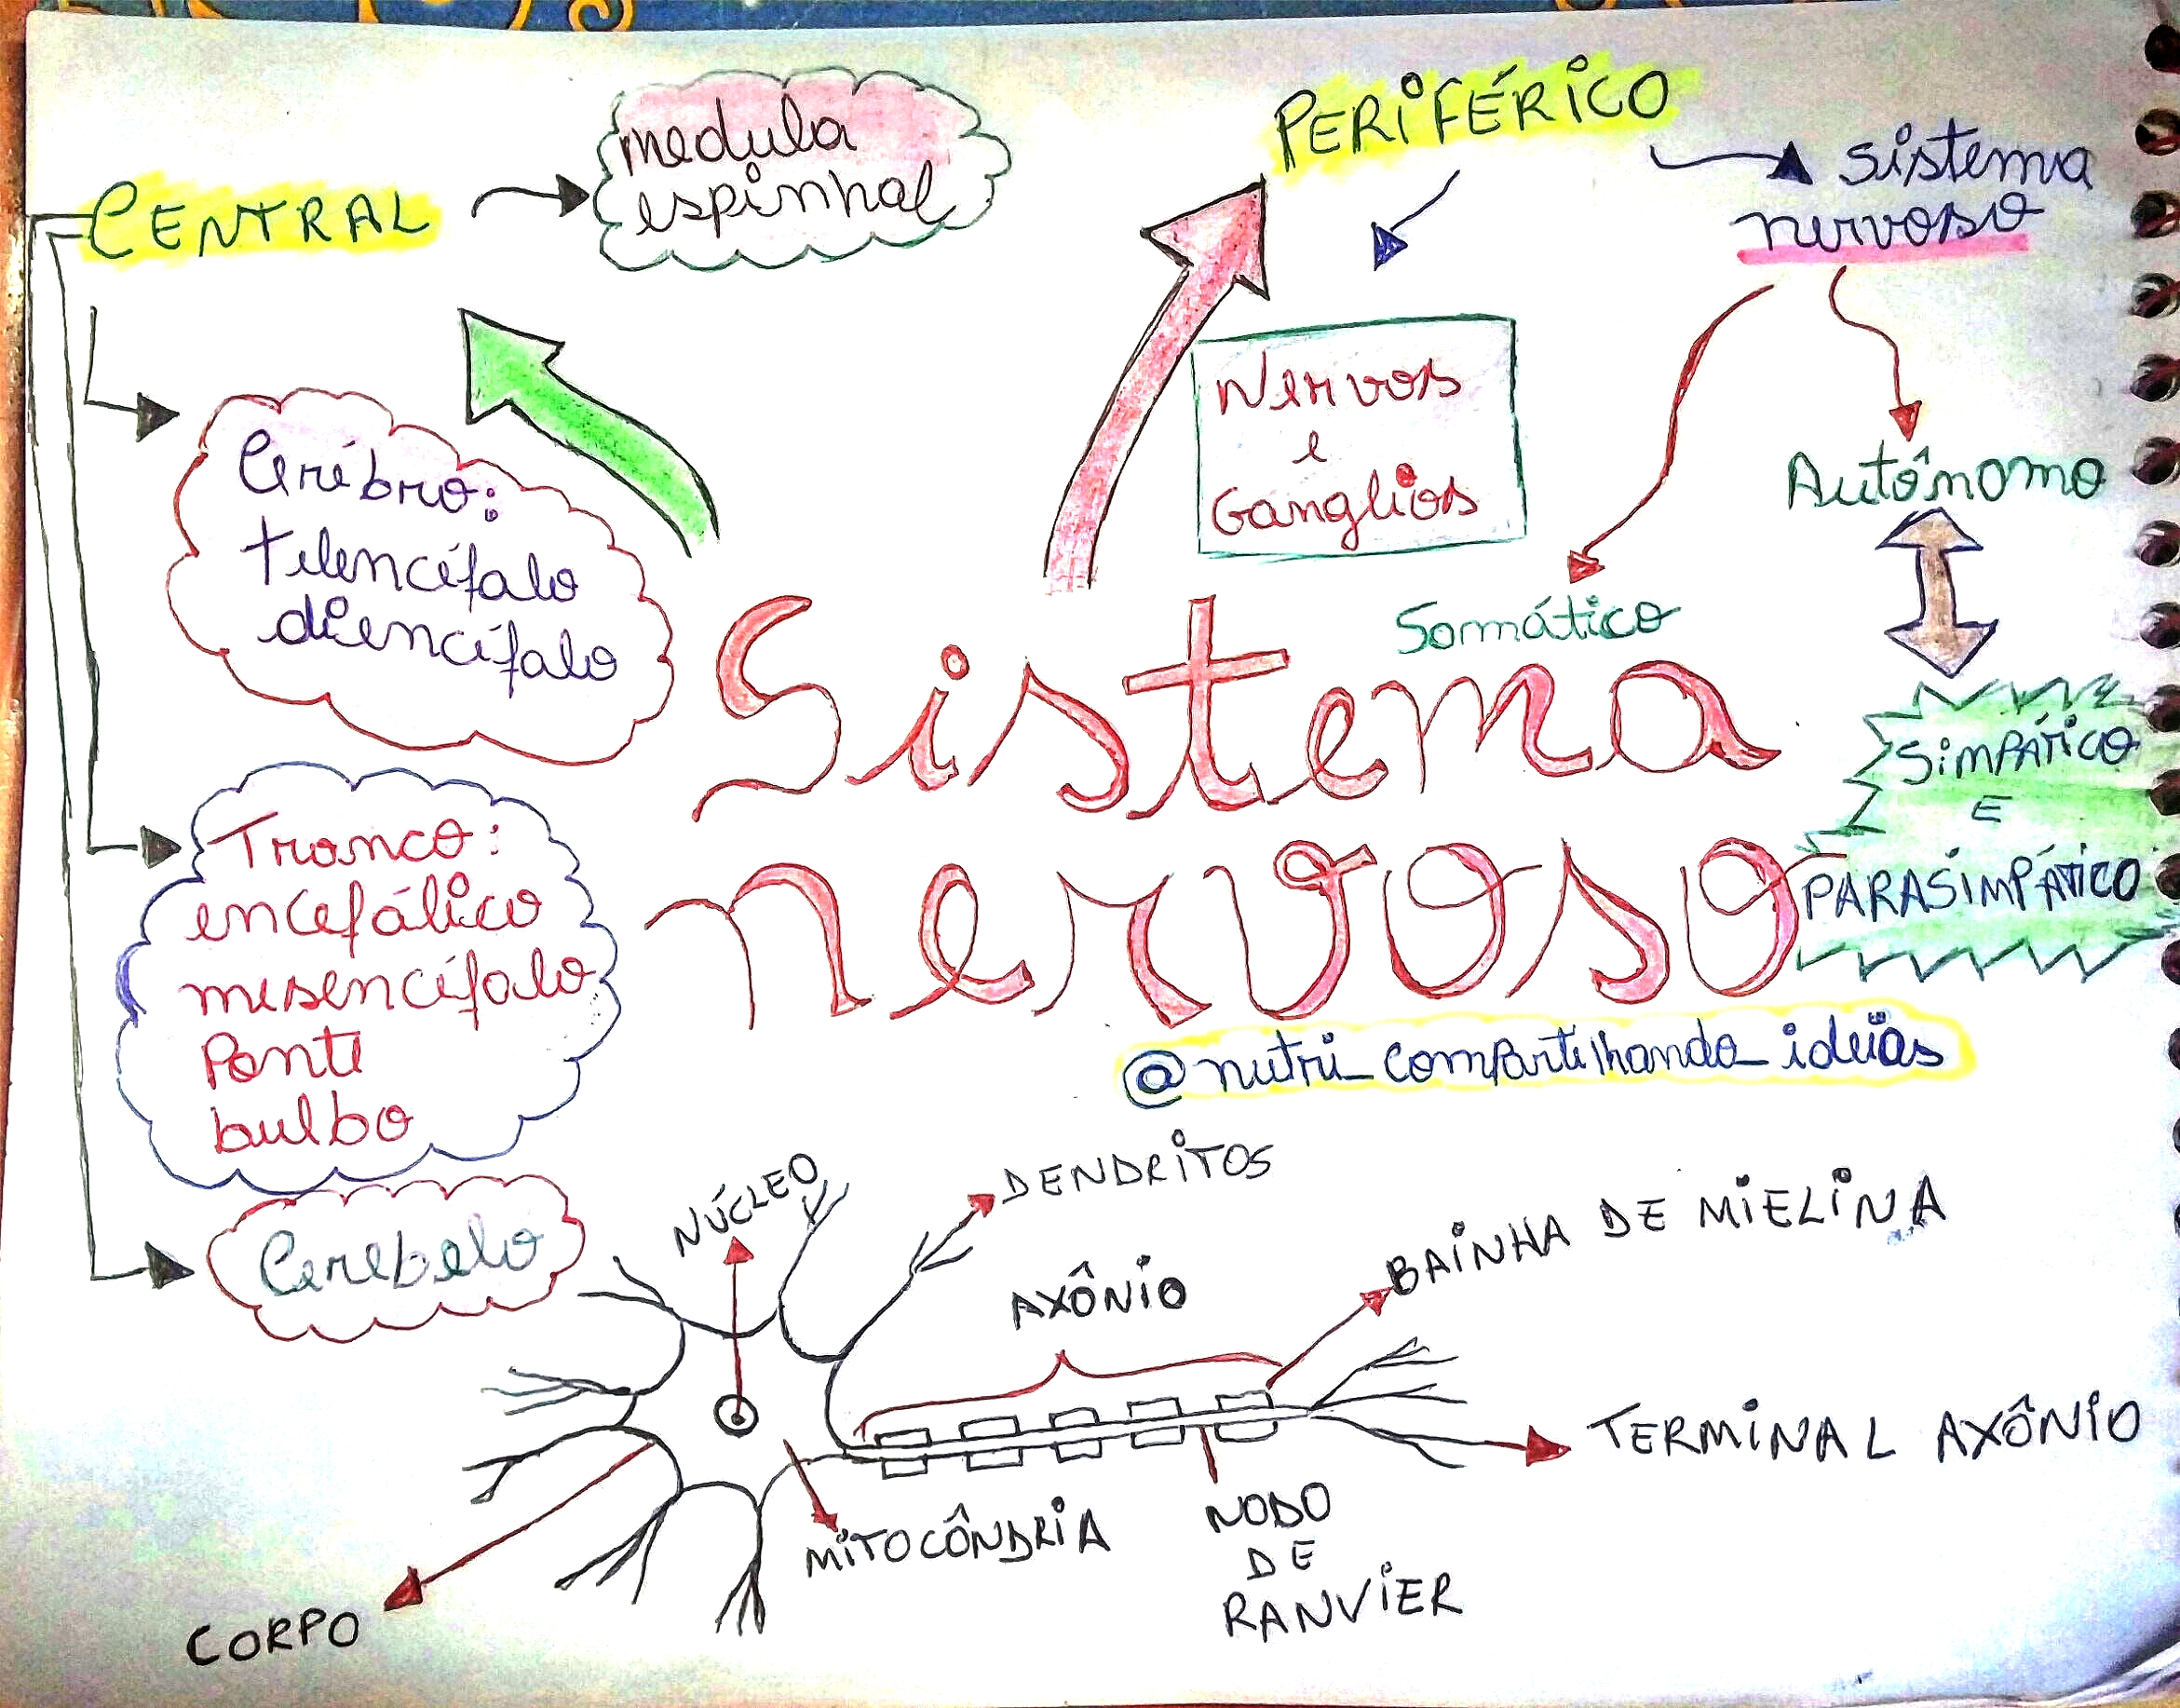 CENTRAL
medula
espinhal
Cerébro:
telencéfalo
diencéfalo
Tronco:
encefálico
mesencéfalo
Ponte
bulbo
Cerebelo
PERIFÉRICO
Nervos
e
Ganglios
sistema
nervoso
Somático
Autônomo
SIMPÁTICO
E
PARASIMPÁTICO
Sistema
nervoso
@nutri_compartilhando_ideias
NÚCLEO
DENDRITOS
AXÔNIO
BAINHA DE MIELINA
TERMINAL AXÔNIO
NODO
DE
RANVIER
MITOCÔNDRIA
CORPO